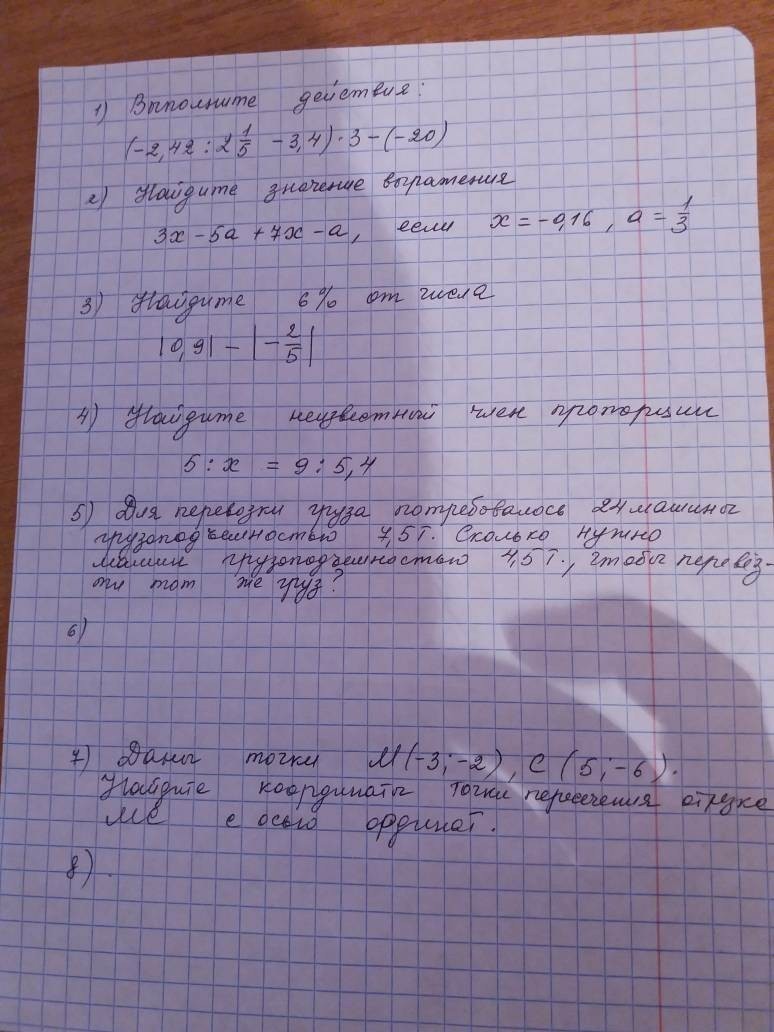 1) Выполните действия:
(-2,42 : 2 1/5 - 3,4) · 3 - (-20)
2) Найдите значение выражения
3x - 5a + 7x - a, если x = -0,16, a = 1/3
3) Найдите 6% от числа
|0,9| - |-2/5|
4) Найдите неизвестный член пропорции
5 : x = 9 : 5,4
5) Для перевозки груза потребовалось 24 машины
грузоподъемностью 7,5 т. Сколько нужно
машин грузоподъемностью 4,5 т., чтобы перевез-
ти тот же груз?
6)
7) Даны точки M (-3; -2), C (5; -6).
Найдите координаты точки пересечения отрезка
MC с осью ординат.
8) .